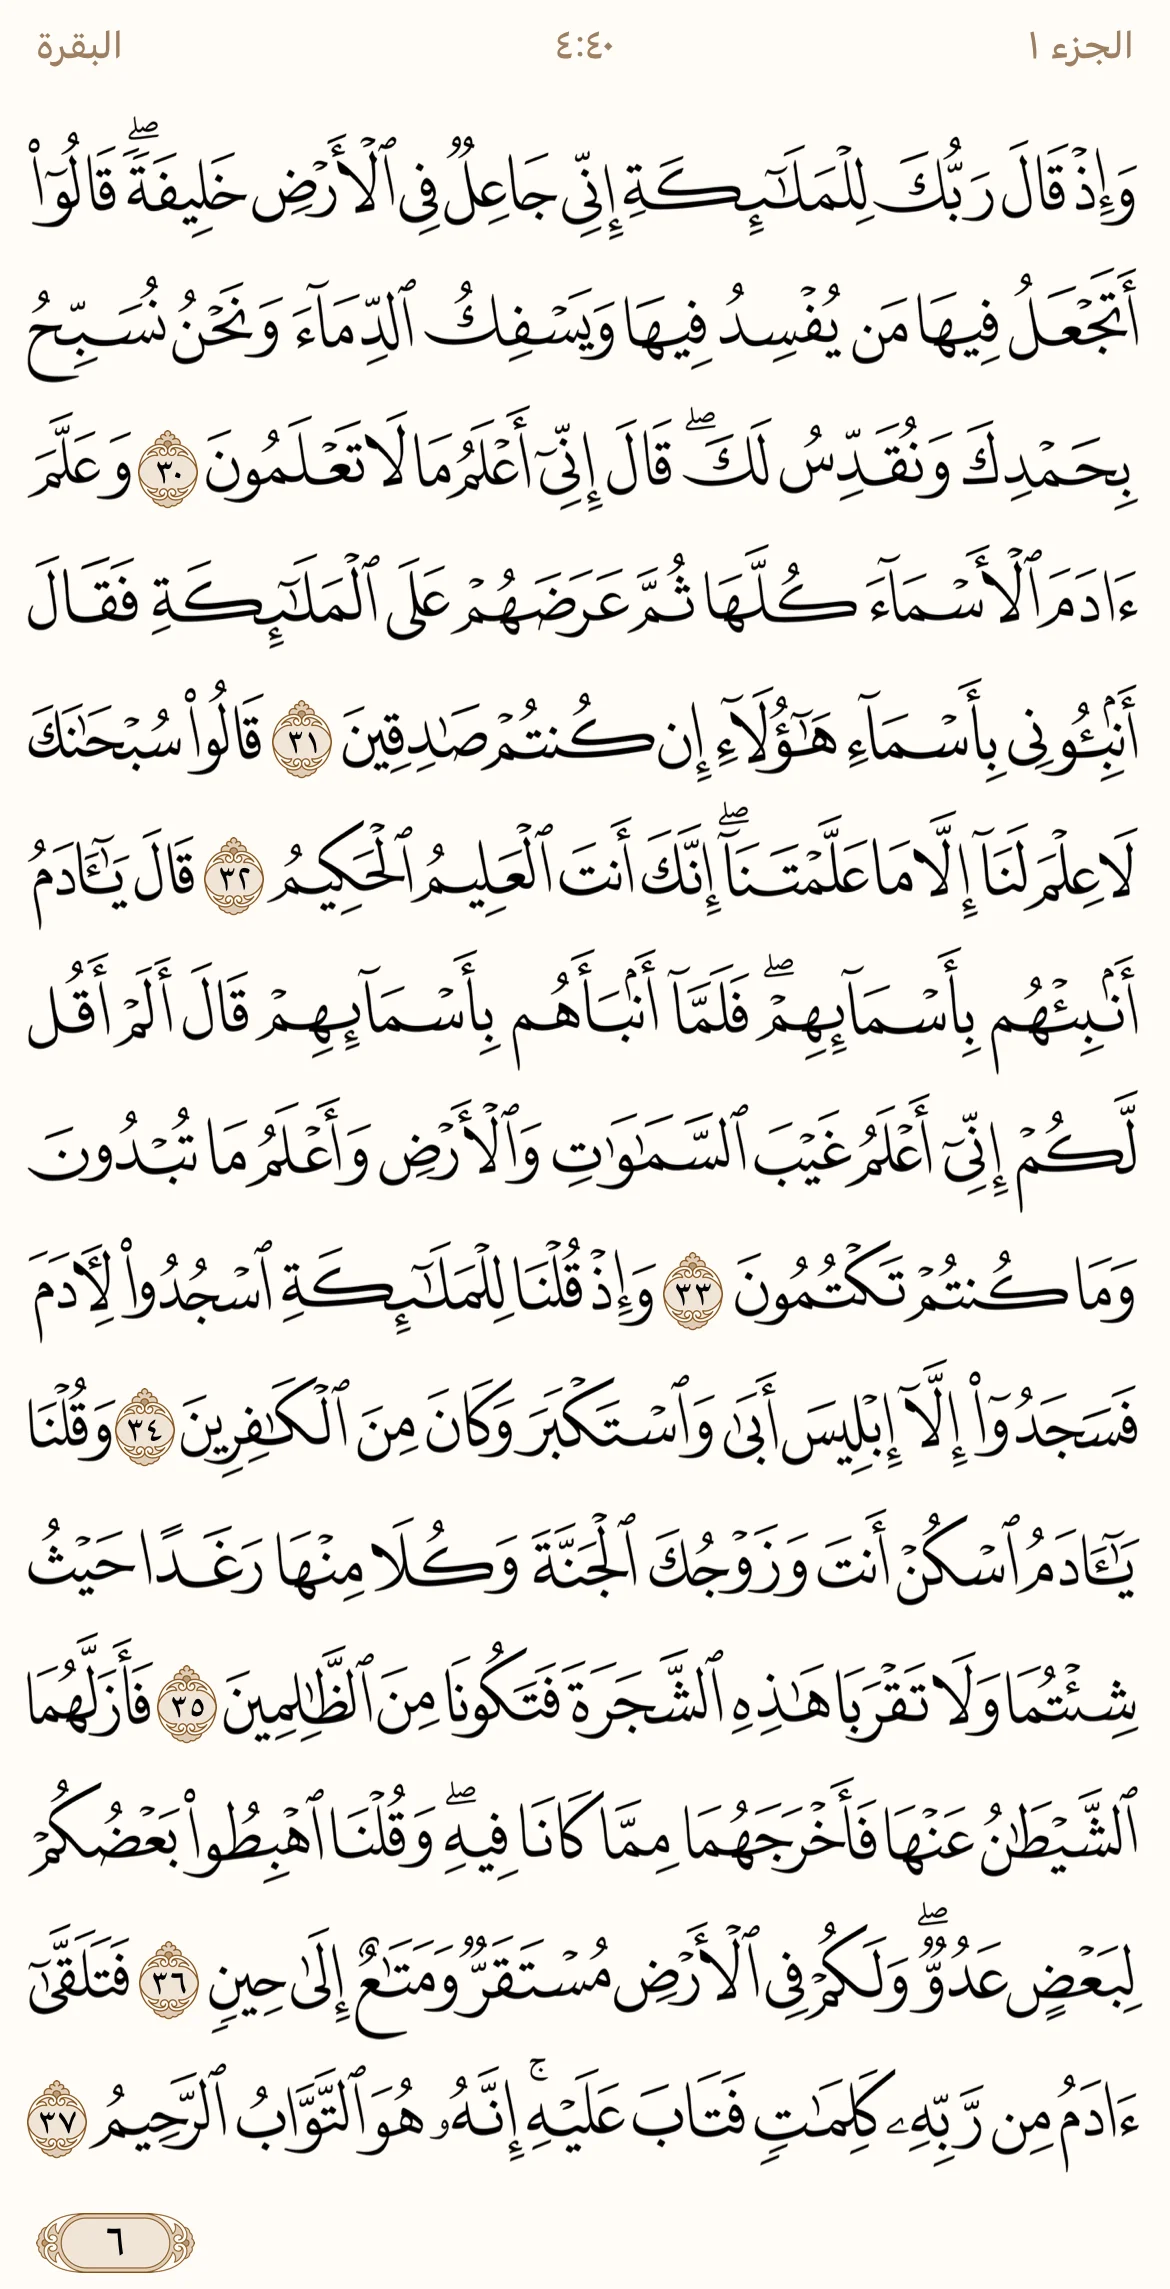 الجزء ١
٤:٤٠
البقرة
وَإِذْ قَالَ رَبُّكَ لِلْمَلَٰٓئِكَةِ إِنِّى جَاعِلٌ فِى ٱلْأَرْضِ خَلِيفَةً ۖ قَالُوٓا۟
أَتَجْعَلُ فِيهَا مَن يُفْسِدُ فِيهَا وَيَسْفِكُ ٱلدِّمَآءَ وَنَحْنُ نُسَبِّحُ
بِحَمْدِكَ وَنُقَدِّسُ لَكَ ۖ قَالَ إِنِّىٓ أَعْلَمُ مَا لَا تَعْلَمُونَ ٣٠ وَعَلَّمَ
ءَادَمَ ٱلْأَسْمَآءَ كُلَّهَا ثُمَّ عَرَضَهُمْ عَلَى ٱلْمَلَٰٓئِكَةِ فَقَالَ
أَنۢبِـُٔونِى بِأَسْمَآءِ هَٰٓؤُلَآءِ إِن كُنتُمْ صَٰدِقِينَ ٣١ قَالُوا۟ سُبْحَٰنَكَ
لَا عِلْمَ لَنَآ إِلَّا مَا عَلَّمْتَنَآ ۖ إِنَّكَ أَنتَ ٱلْعَلِيمُ ٱلْحَكِيمُ ٣٢ قَالَ يَٰٓـَٔادَمُ
أَنۢبِئْهُم بِأَسْمَآئِهِمْ ۖ فَلَمَّآ أَنۢبَأَهُم بِأَسْمَآئِهِمْ قَالَ أَلَمْ أَقُل
لَّكُمْ إِنِّىٓ أَعْلَمُ غَيْبَ ٱلسَّمَٰوَٰتِ وَٱلْأَرْضِ وَأَعْلَمُ مَا تُبْدُونَ
وَمَا كُنتُمْ تَكْتُمُونَ ٣٣ وَإِذْ قُلْنَا لِلْمَلَٰٓئِكَةِ ٱسْجُدُوا۟ لِـَٔادَمَ
فَسَجَدُوٓا۟ إِلَّآ إِبْلِيسَ أَبَىٰ وَٱسْتَكْبَرَ وَكَانَ مِنَ ٱلْكَٰفِرِينَ ٣٤ وَقُلْنَا
يَٰٓـَٔادَمُ ٱسْكُنْ أَنتَ وَزَوْجُكَ ٱلْجَنَّةَ وَكُلَا مِنْهَا رَغَدًا حَيْثُ
شِئْتُمَا وَلَا تَقْرَبَا هَٰذِهِ ٱلشَّجَرَةَ فَتَكُونَا مِنَ ٱلظَّٰلِمِينَ ٣٥ فَأَزَلَّهُمَا
ٱلشَّيْطَٰنُ عَنْهَا فَأَخْرَجَهُمَا مِمَّا كَانَا فِيهِ ۖ وَقُلْنَا ٱهْبِطُوا۟ بَعْضُكُمْ
لِبَعْضٍ عَدُوٌّ ۖ وَلَكُمْ فِى ٱلْأَرْضِ مُسْتَقَرٌّ وَمَتَٰعٌ إِلَىٰ حِينٍ ٣٦ فَتَلَقَّىٰٓ
ءَادَمُ مِن رَّبِّهِۦ كَلِمَٰتٍ فَتَابَ عَلَيْهِ ۚ إِنَّهُۥ هُوَ ٱلتَّوَّابُ ٱلرَّحِيمُ ٣٧
٦